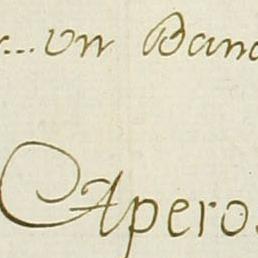 ...un Banc
Apero.